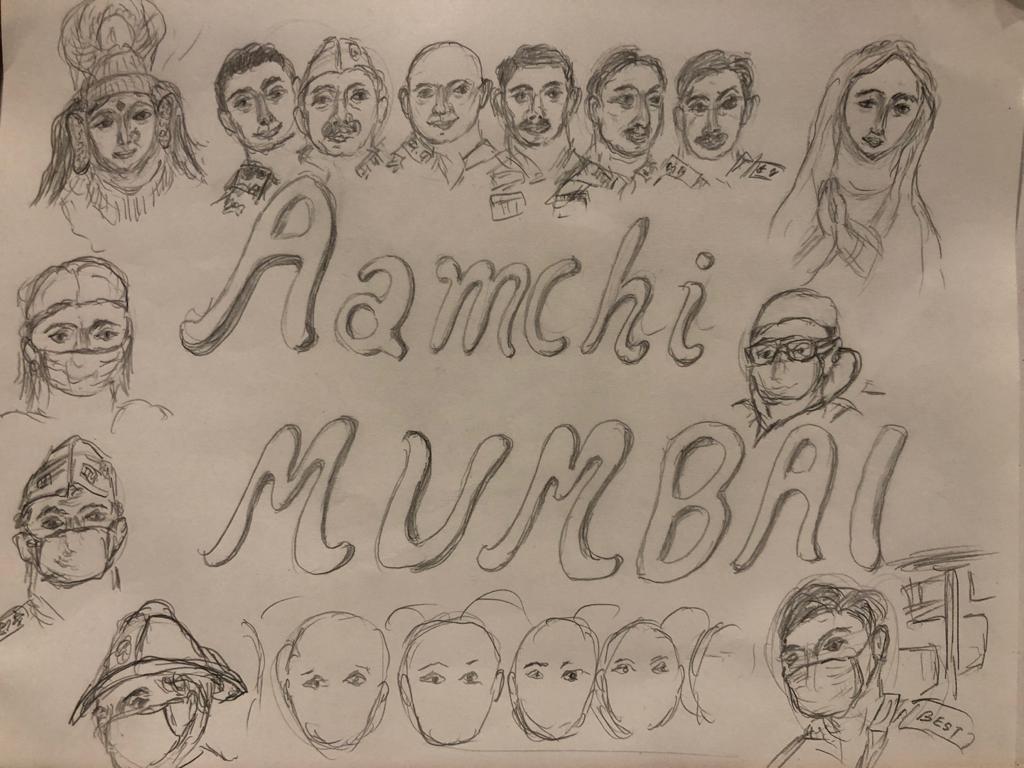 Aamchi
MUMBAI
BEST